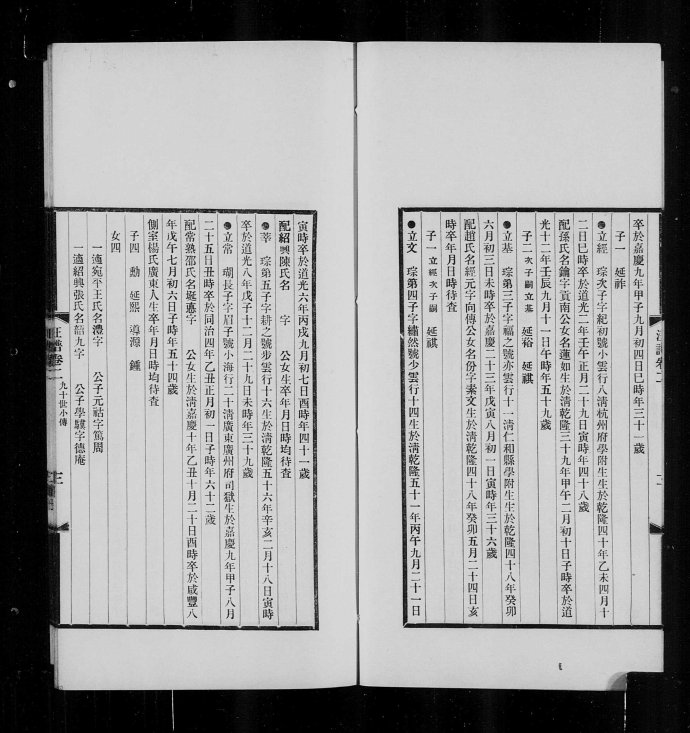 卒於嘉慶九年甲子九月初四日巳時年三十一歲
子一 延祚
●立經 琮次子字紀初號小雲行八淸杭州府學附生生於乾隆四十年乙未四月十
二日巳時卒於道光二年壬午正月二十九日寅時年四十八歲
配孫氏名鑰字貢南公女名蓮如生於淸乾隆三十九年甲午二月初十日子時卒於道
光十二年壬辰九月十一日午時年五十九歲
子二 次子嗣立基 延裕 延祺
●立基 琮第三子字福之號亦雲行十一淸仁和縣學附生生於乾隆四十八年癸卯
六月初三日未時卒於嘉慶二十三年戊寅八月初一日寅時年三十六歲
配趙氏名經元字向傳公女名份字素文生於淸乾隆四十八年癸卯五月二十四日亥
時卒年月日時待査
子一 立經次子嗣 延祺
●立文 琮第四子字繡然號少雲行十四生於淸乾隆五十一年丙午九月二十一日
寅時卒於道光六年丙戌九月初七日酉時年四十一歲
配紹興陳氏名 字 公女生卒年月日時均待査
●莘 琮第五子字耕之號步雲行十六生於淸乾隆五十六年辛亥二月十八日寅時
卒於道光八年戊子十二月二十九日未時年三十九歲
●立常 瑚長子字眉子號小海行二十淸廣東廣州府司獄生於嘉慶九年甲子八月
二十五日丑時卒於同治四年乙丑正月初一日子時年六十二歲
配常熟邵氏名 字 公女生於淸嘉慶十年乙丑十月二十日酉時卒於咸豐八
年戊午七月初六日子時年五十四歲
側室楊氏廣東人生卒年月日時均待査
子四 勳 延熙 導源 鍾
女四
一適宛平王氏名澧字 公子元祜字篤周
一適紹興張氏名誥九字 公子學驥字德庵
汪譜卷二 九十世小傳